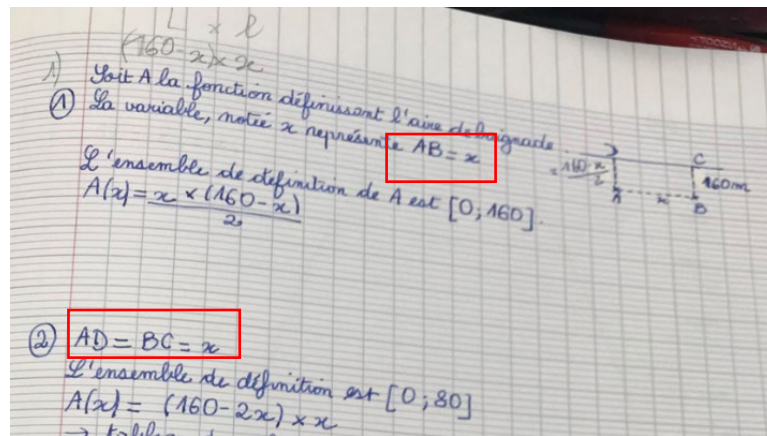 L x l
(160-x) x x
1)
Soit A la fonction définissant l'aire de baignade
① La variable, notée x représente AB = x
L'ensemble de définition de A est [0; 160].
A(x) = x × (160-x)
2
= 160-x
2
C
160m
A
x
B
② AD = BC = x
L'ensemble de définition est [0; 80]
A(x) = (160-2x) × x